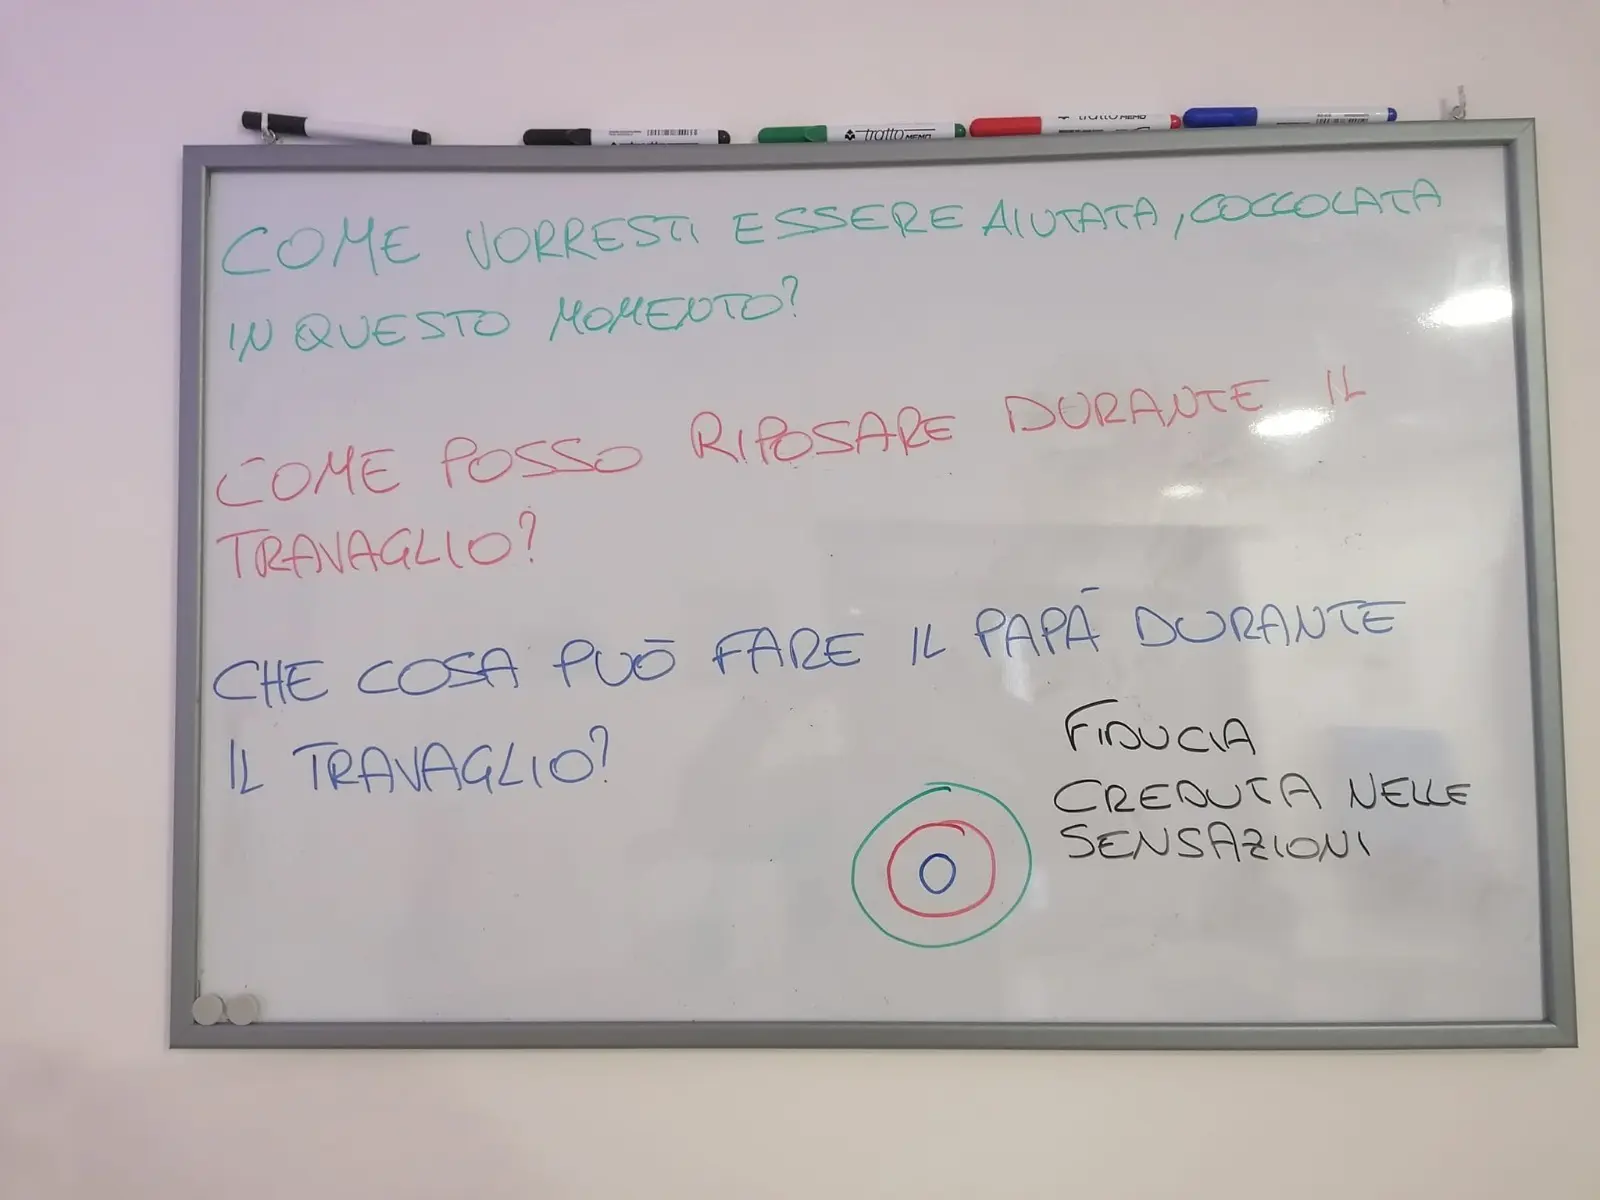 tratto MEMO
tratto MEMO
COME VORRESTI ESSERE AIUTATA, COCCOLATA
IN QUESTO MOMENTO?
COME POSSO RIPOSARE DURANTE IL
TRAVAGLIO?
CHE COSA PUÒ FARE IL PAPÀ DURANTE
IL TRAVAGLIO?
FIDUCIA
CREDUTA NELLE
SENSAZIONI